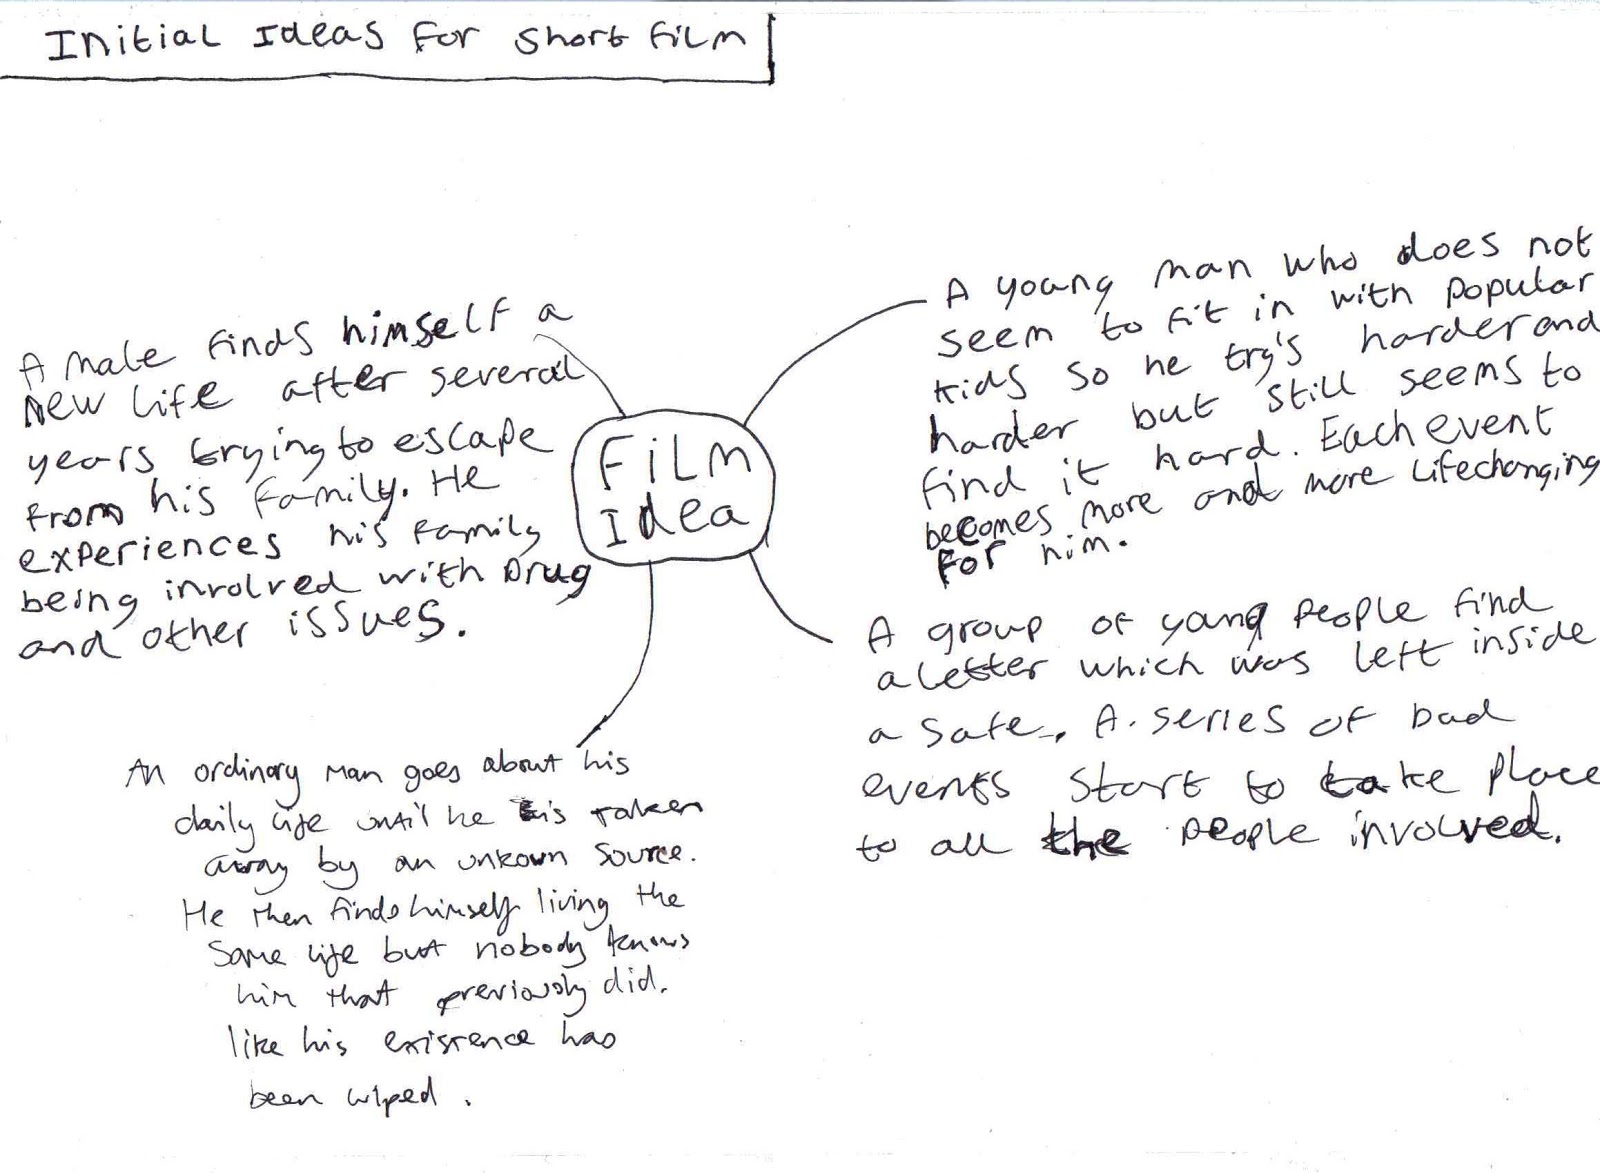 Initial Ideas for short film
A male finds himself a
new life after several
years trying to escape
from his family. He
experiences his family
being involved with Drug
and other issues.
Film
Idea
A young man who does not
seem to fit in with popular
kids so he try's harder and
harder but still seems to
find it hard. Each event
becomes more and more lifechanging
for him.
A group of young people find
a letter which was left inside
a safe. A series of bad
events start to take place
to all the people involved.
An ordinary man goes about his
daily life until he is taken
away by an unkown source.
He then finds himself living the
same life but nobody knows
him that previously did.
like his existence has
been wiped.